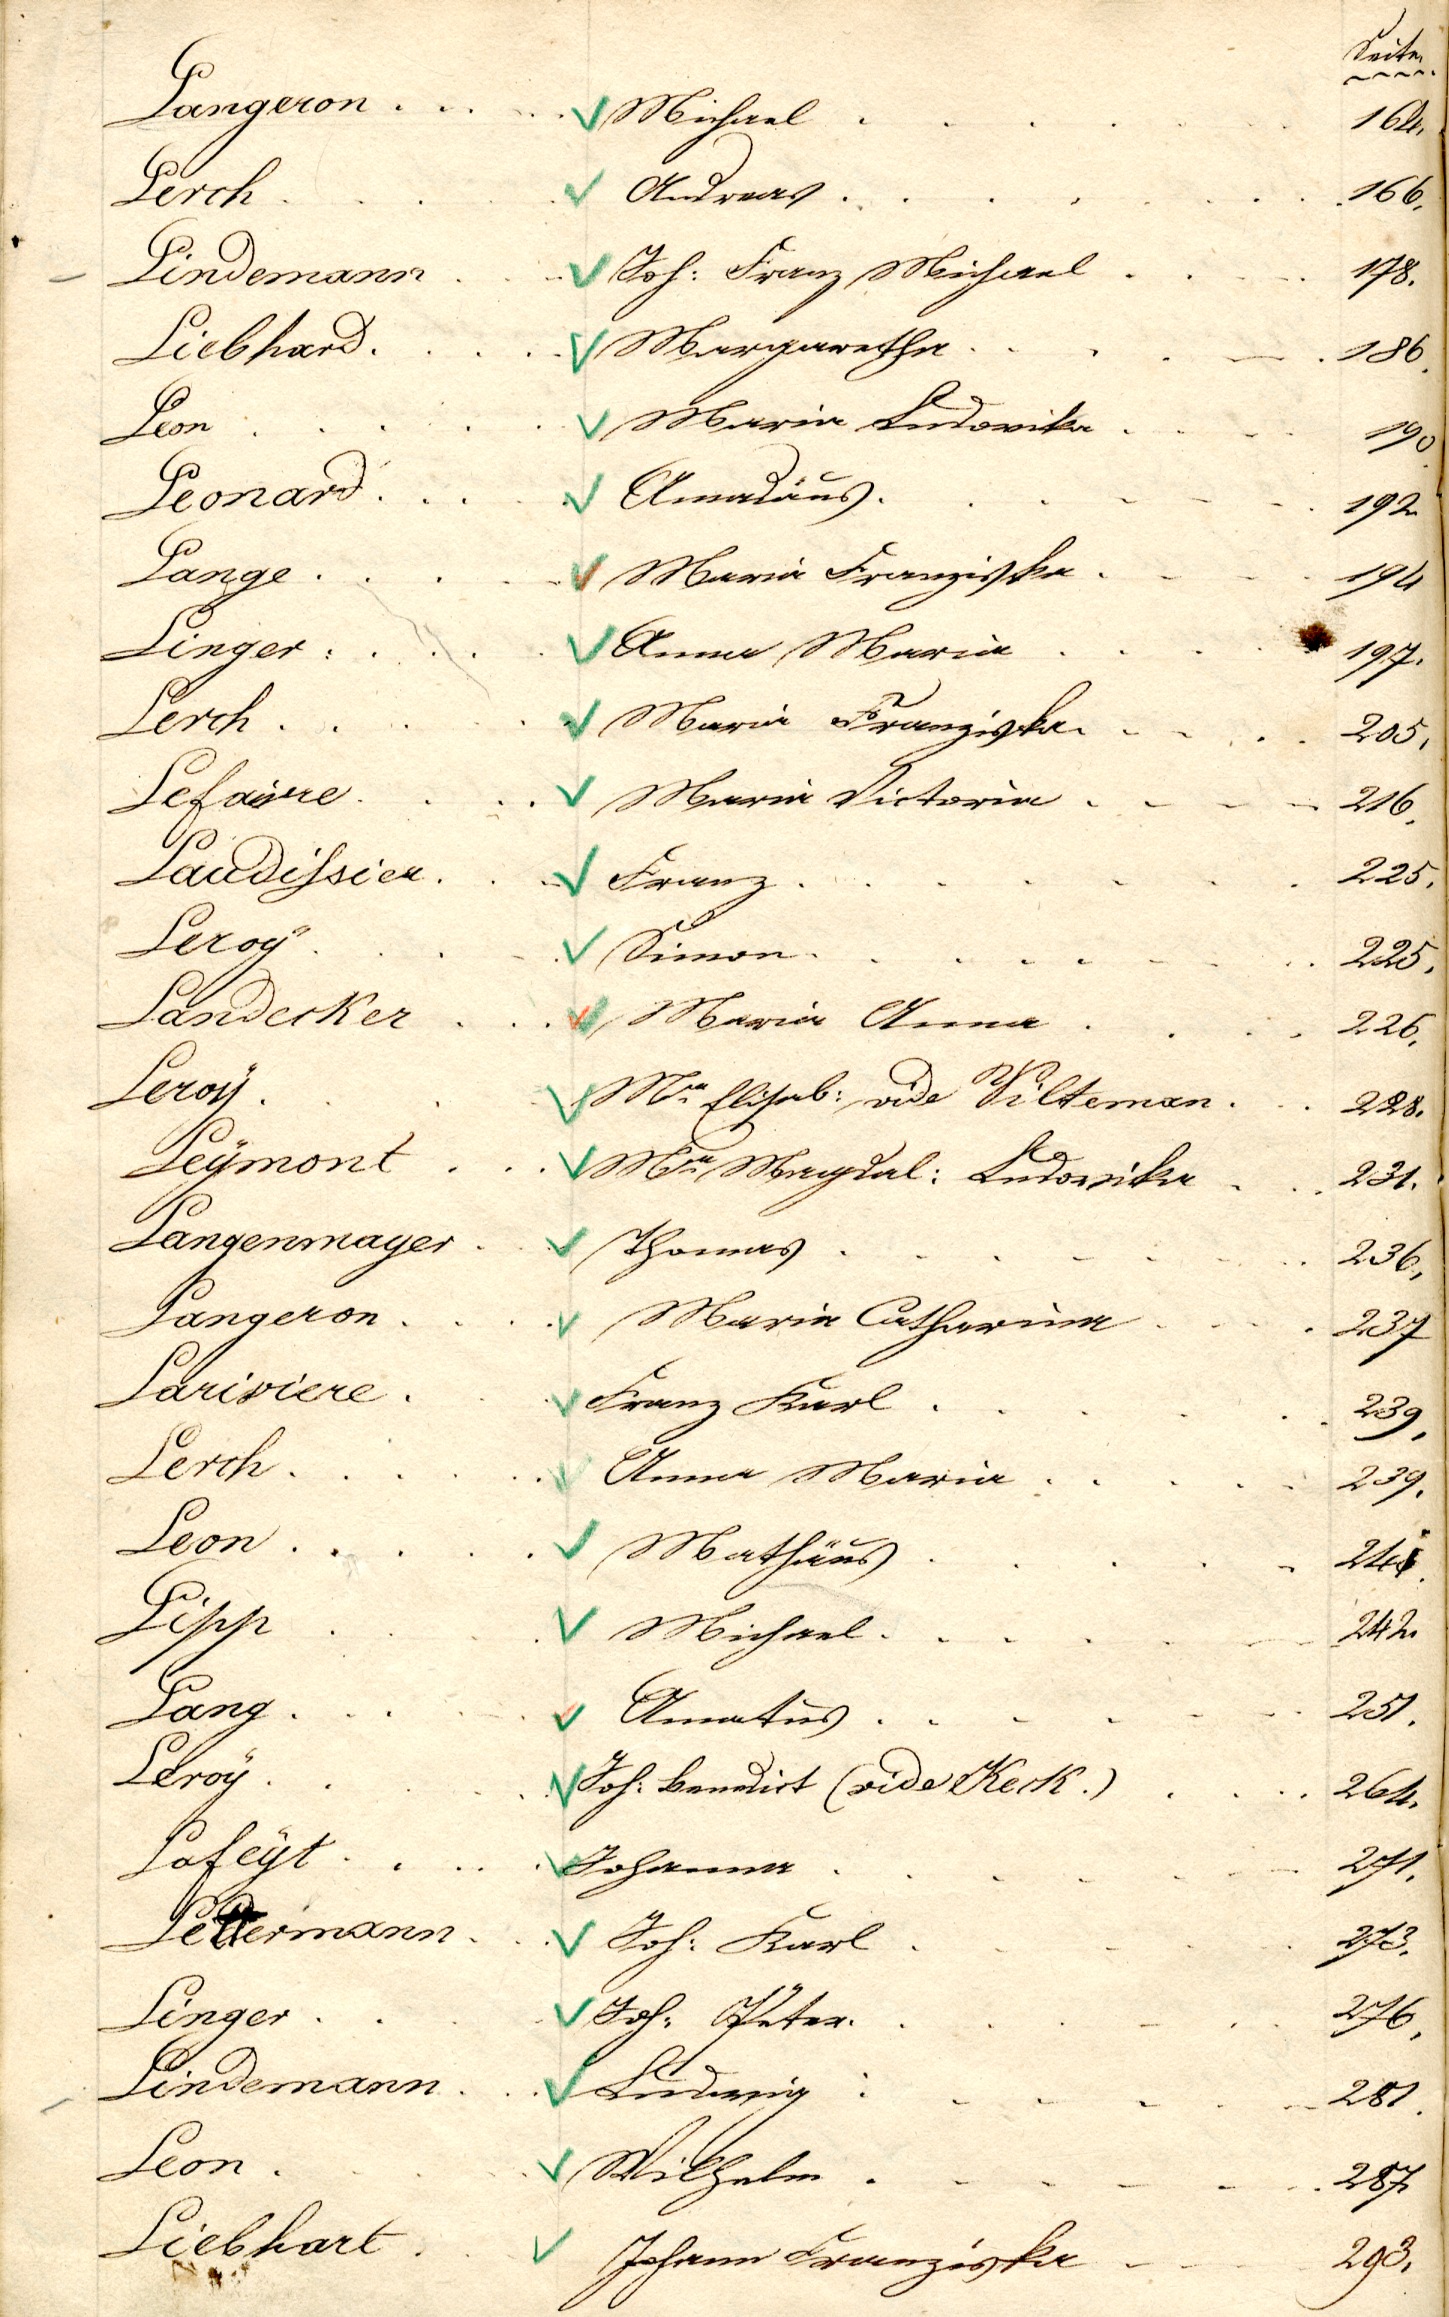 Seite
Langeron . . . . Michael . . . . . . 164.
Lerch . . . . . Andreas . . . . . . . 166.
Lindemann . . . Joh: Franz Michael . . . . 178.
Liebhard . . . . Margaretha . . . . . 186.
Leon . . . . . Maria Ludovika . . . . 190.
Leonard . . . . Amadäus . . . . . . 192.
Lange . . . . . Maria Franziska . . . . 194
Linger . . . . . Anna Maria . . . . 197.
Lerch . . . . . Maria Franziska . . . . 205.
Lefaivre . . . . Maria Victoria . . . . 216.
Laudissier . . . Franz . . . . . . . 225.
Leroÿ . . . . . Simon . . . . . . . 225.
Landecker . . . Maria Anna . . . . 226.
Leroÿ . . . . Mra Elisab: vide Vilteman . . . 228.
Leÿmont . . . Mra Magdal: Ludovika . . . 231.
Langenmayer . . Thomas . . . . . . 236.
Langeron . . . . Maria Catharina . . . . 237
Lariviere . . . . Franz Karl . . . . . . 239.
Lerch . . . . . Anna Maria . . . . . 239.
Leon . . . . . Mathäus . . . . . 241.
Lipp . . . . . Michael . . . . . . 242.
Lang . . . . . Amatus . . . . . . 251.
Leroÿ . . . . . Joh: Benedict (vide Keck.) . . . 264.
Lafeÿt . . . . . Johanna . . . . . . 271.
Lettermann . . . Joh: Karl . . . . . . 273.
Linger . . . . Joh: Peter . . . . . . 276.
Lindemann . . . Ludwig . . . . . . 281.
Leon . . . . . Wilhelm . . . . . . 287.
Liebhart . . . Johann Franziska . . . 293.